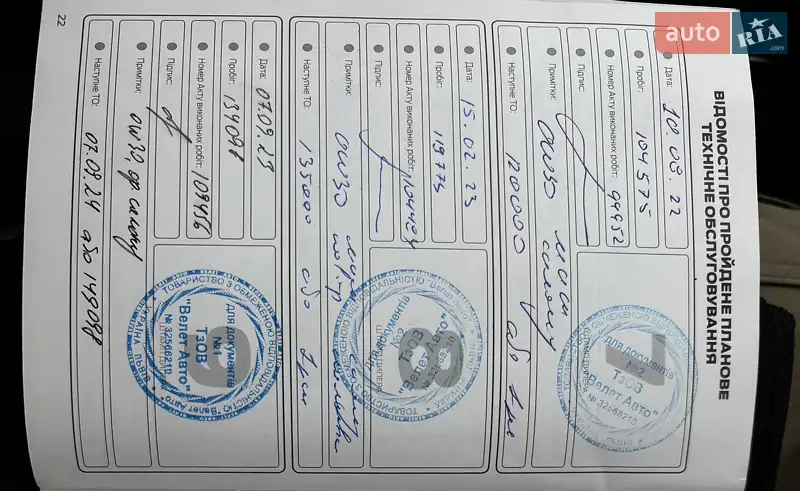 auto
RIA
.com
ВІДОМОСТІ ПРО ПРОЙДЕНЕ ПЛАНОВЕ
ТЕХНІЧНЕ ОБСЛУГОВУВАННЯ
Дата: 10.08.22
Пробіг: 104575
Номер Акту виконаних робіт: 99952
Підпис:
Примітки: 0W30
салону
Наступне ТО: 120000 або 1 рік
7
ДЛЯ ДОКУМЕНТІВ
№2
ТзОВ
"Велет Авто"
№ 32568210
Дата: 15.02.23
Пробіг: 119775
Номер Акту виконаних робіт: 104424
Підпис:
Примітки: 0W30
Наступне ТО: 135000 або 1 рік
8
ТОВАРИСТВО З ОБМЕЖЕНОЮ ВІДПОВІДАЛЬНІСТЮ "Велет Авто"
ДЛЯ ДОКУМЕНТІВ
№2
ТзОВ
"Велет Авто"
№ 32568210
Дата: 07.09.23
Пробіг: 134098
Номер Акту виконаних робіт: 109456
Підпис:
Примітки: 0W30, ф. салону
Наступне ТО: 07.09.24 або 149098
9
ТОВАРИСТВО З ОБМЕЖЕНОЮ ВІДПОВІДАЛЬНІСТЮ "Велет Авто"
УКРАЇНА ЛЬВІВ
ДЛЯ ДОКУМЕНТІВ
№1
ТзОВ
"Велет Авто"
№ 32568210
22